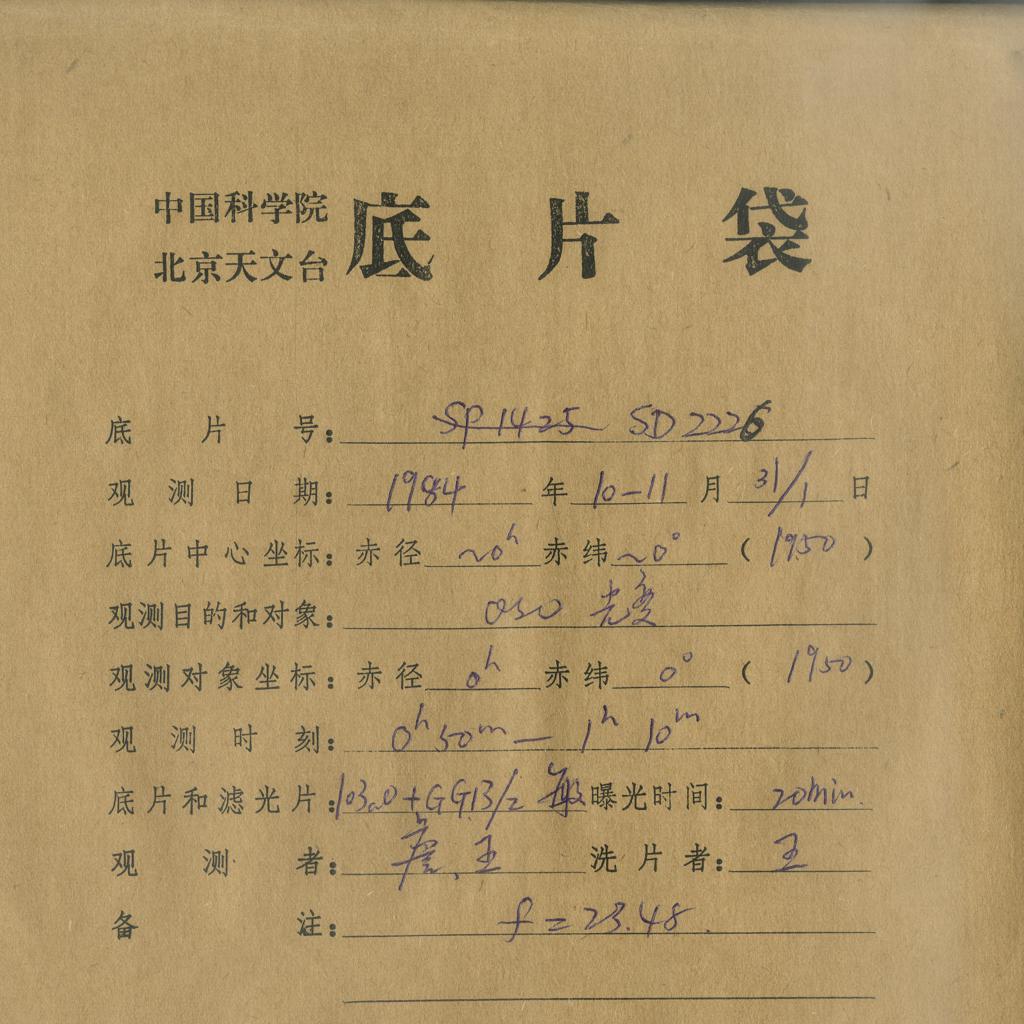 中国科学院
北京天文台
底片袋
底片号: SP1425 SD2226
观测日期: 1984年10-11月31/1日
底片中心坐标: 赤径 ~0h 赤纬 ~0° (1950)
观测目的和对象: QSO 光变
观测对象坐标: 赤径 0h 赤纬 0° (1950)
观测时刻: 0h 50m — 1h 10m
底片和滤光片: 103aO+GG13/2 曝光时间: 20min.
观测者: 王 洗片者: 王
备注: f=23.48